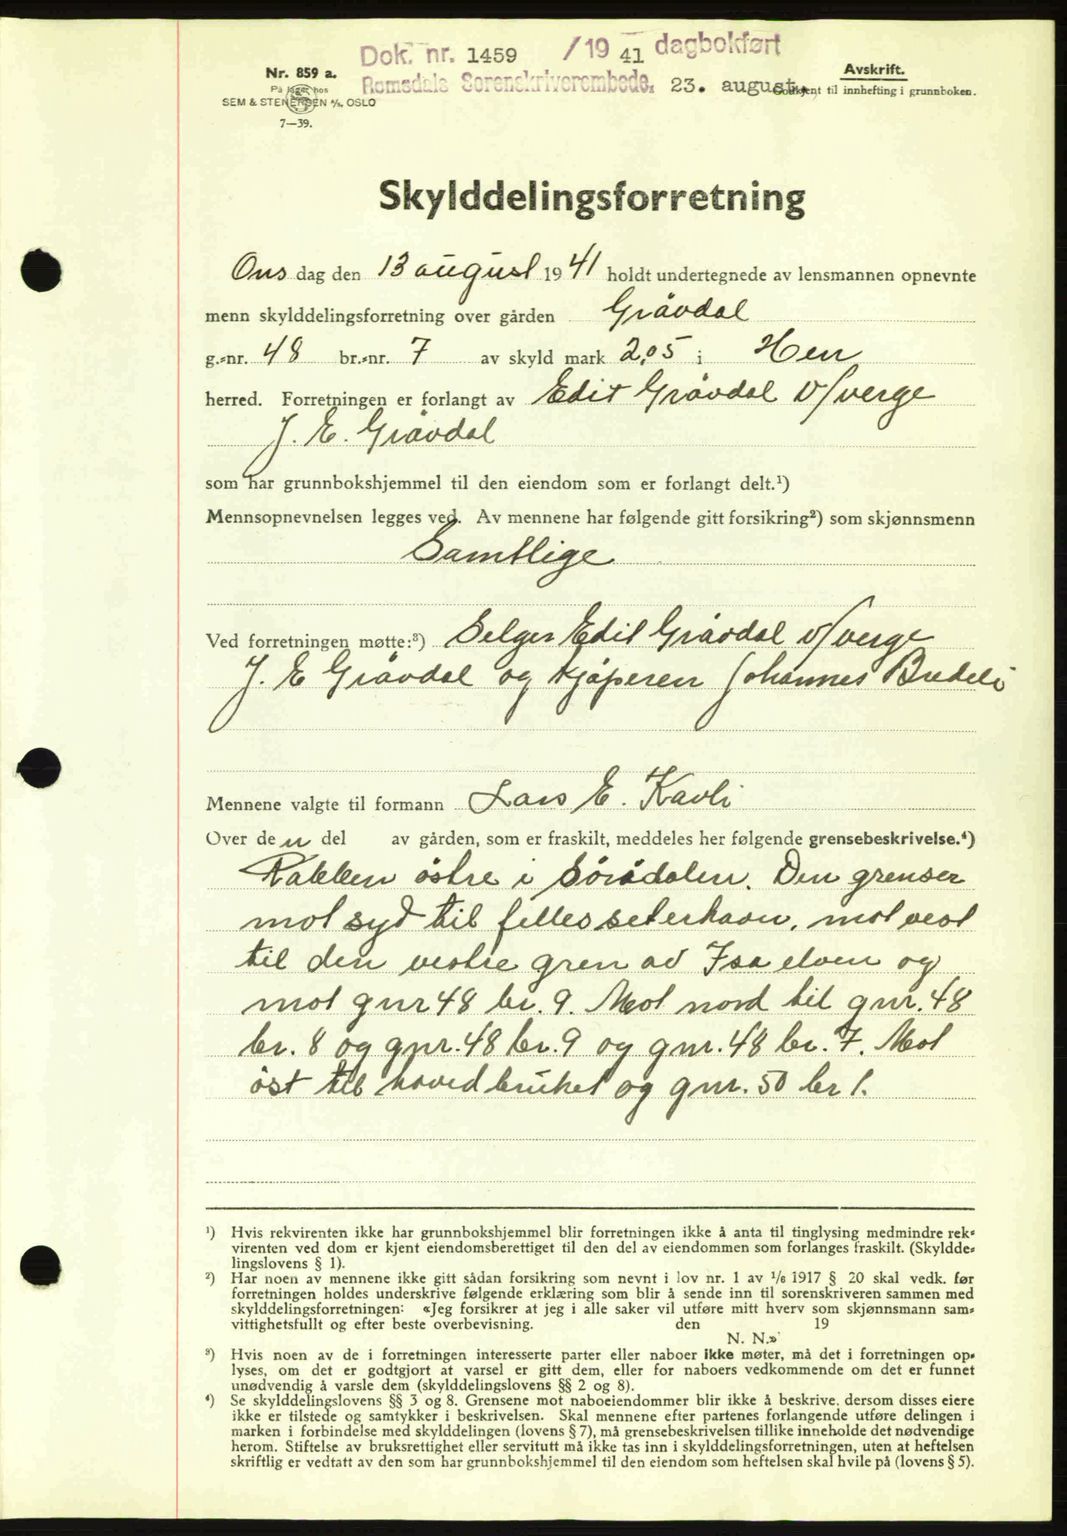 Dok. nr. 1459 /19 41 dagbokført
Romsdals Sorenskriverembede, 23. august.
Nr. 859 a.
På lager hos
SEM & STENERSEN A/S, OSLO
7—39.
Avskrift.
Godkjent til innhefting i grunnboken.
Skylddelingsforretning
Ons dag den 13 august 19 41 holdt undertegnede av lensmannen opnevnte
menn skylddelingsforretning over gården Gråvdal
g.-nr. 48 br.-nr. 7 av skyld mark 2,05 i Hen
herred. Forretningen er forlangt av Edit Gråvdal v/verge
J. E. Gråvdal
som har grunnbokshjemmel til den eiendom som er forlangt delt.¹)
Mennsopnevnelsen legges ved. Av mennene har følgende gitt forsikring²) som skjønnsmenn
Samtlige
Ved forretningen møtte:³) Selger Edit Gråvdal v/verge
J. E Gråvdal og kjøperen Johannes Bredeli
Mennene valgte til formann Lars E. Kavli
Over den del av gården, som er fraskilt, meddeles her følgende grensebeskrivelse.⁴)
Rabben østre i Sørådalen. Den grenser
mot syd til felles seterhavn, mot vest
til den vestre gren av Isa elven og
mot gnr 48 br. 9. Mot nord til gnr. 48
br. 8 og gnr. 48 br. 9 og gnr. 48 br. 7. Mot
øst til hovedbruket og gnr. 50 br 1.
¹) Hvis rekvirenten ikke har grunnbokshjemmel blir forretningen ikke å anta til tinglysing medmindre rek-
virenten ved dom er kjent eiendomsberettiget til den del av eiendommen som forlanges fraskilt. (Skyldde-
lingslovens § 1).
²) Har noen av mennene ikke gitt sådan forsikring som nevnt i lov nr. 1 av 1/6 1917 § 20 skal vedk. før
forretningen holdes underskrive følgende erklæring som blir å sende inn til sorenskriveren sammen med
skylddelingsforretningen: «Jeg forsikrer at jeg i alle saker vil utføre mitt hverv som skjønnsmann sam-
vittighetsfullt og efter beste overbevisning. den 19
N. N.»
³) Hvis noen av de i forretningen interesserte parter eller naboer ikke møter, må det i forretningen op-
lyses, om det er godtgjort at varsel er gitt dem, eller for naboers vedkommende om det er funnet
unødvendig å varsle dem (skylddelingslovens §§ 2 og 8).
⁴) Se skylddelingslovens §§ 3 og 8. Grensene mot naboeiendommer blir ikke å beskrive, dersom disses eiere
ikke er tilstede og samtykker i beskrivelsen. Skal mennene efter partenes forlangende utføre delingen i
marken i forbindelse med skylddelingen (lovens § 7), må grensebeskrivelsen tillike inneholde det nødvendige
herom. Stiftelse av bruksrettighet eller servitutt må ikke tas inn i skylddelingsforretningen, uten at heftelsen
skriftlig er vedtatt av den som har grunnbokshjemmel til den eiendom som heftelsen skal hvile på (lovens § 5).